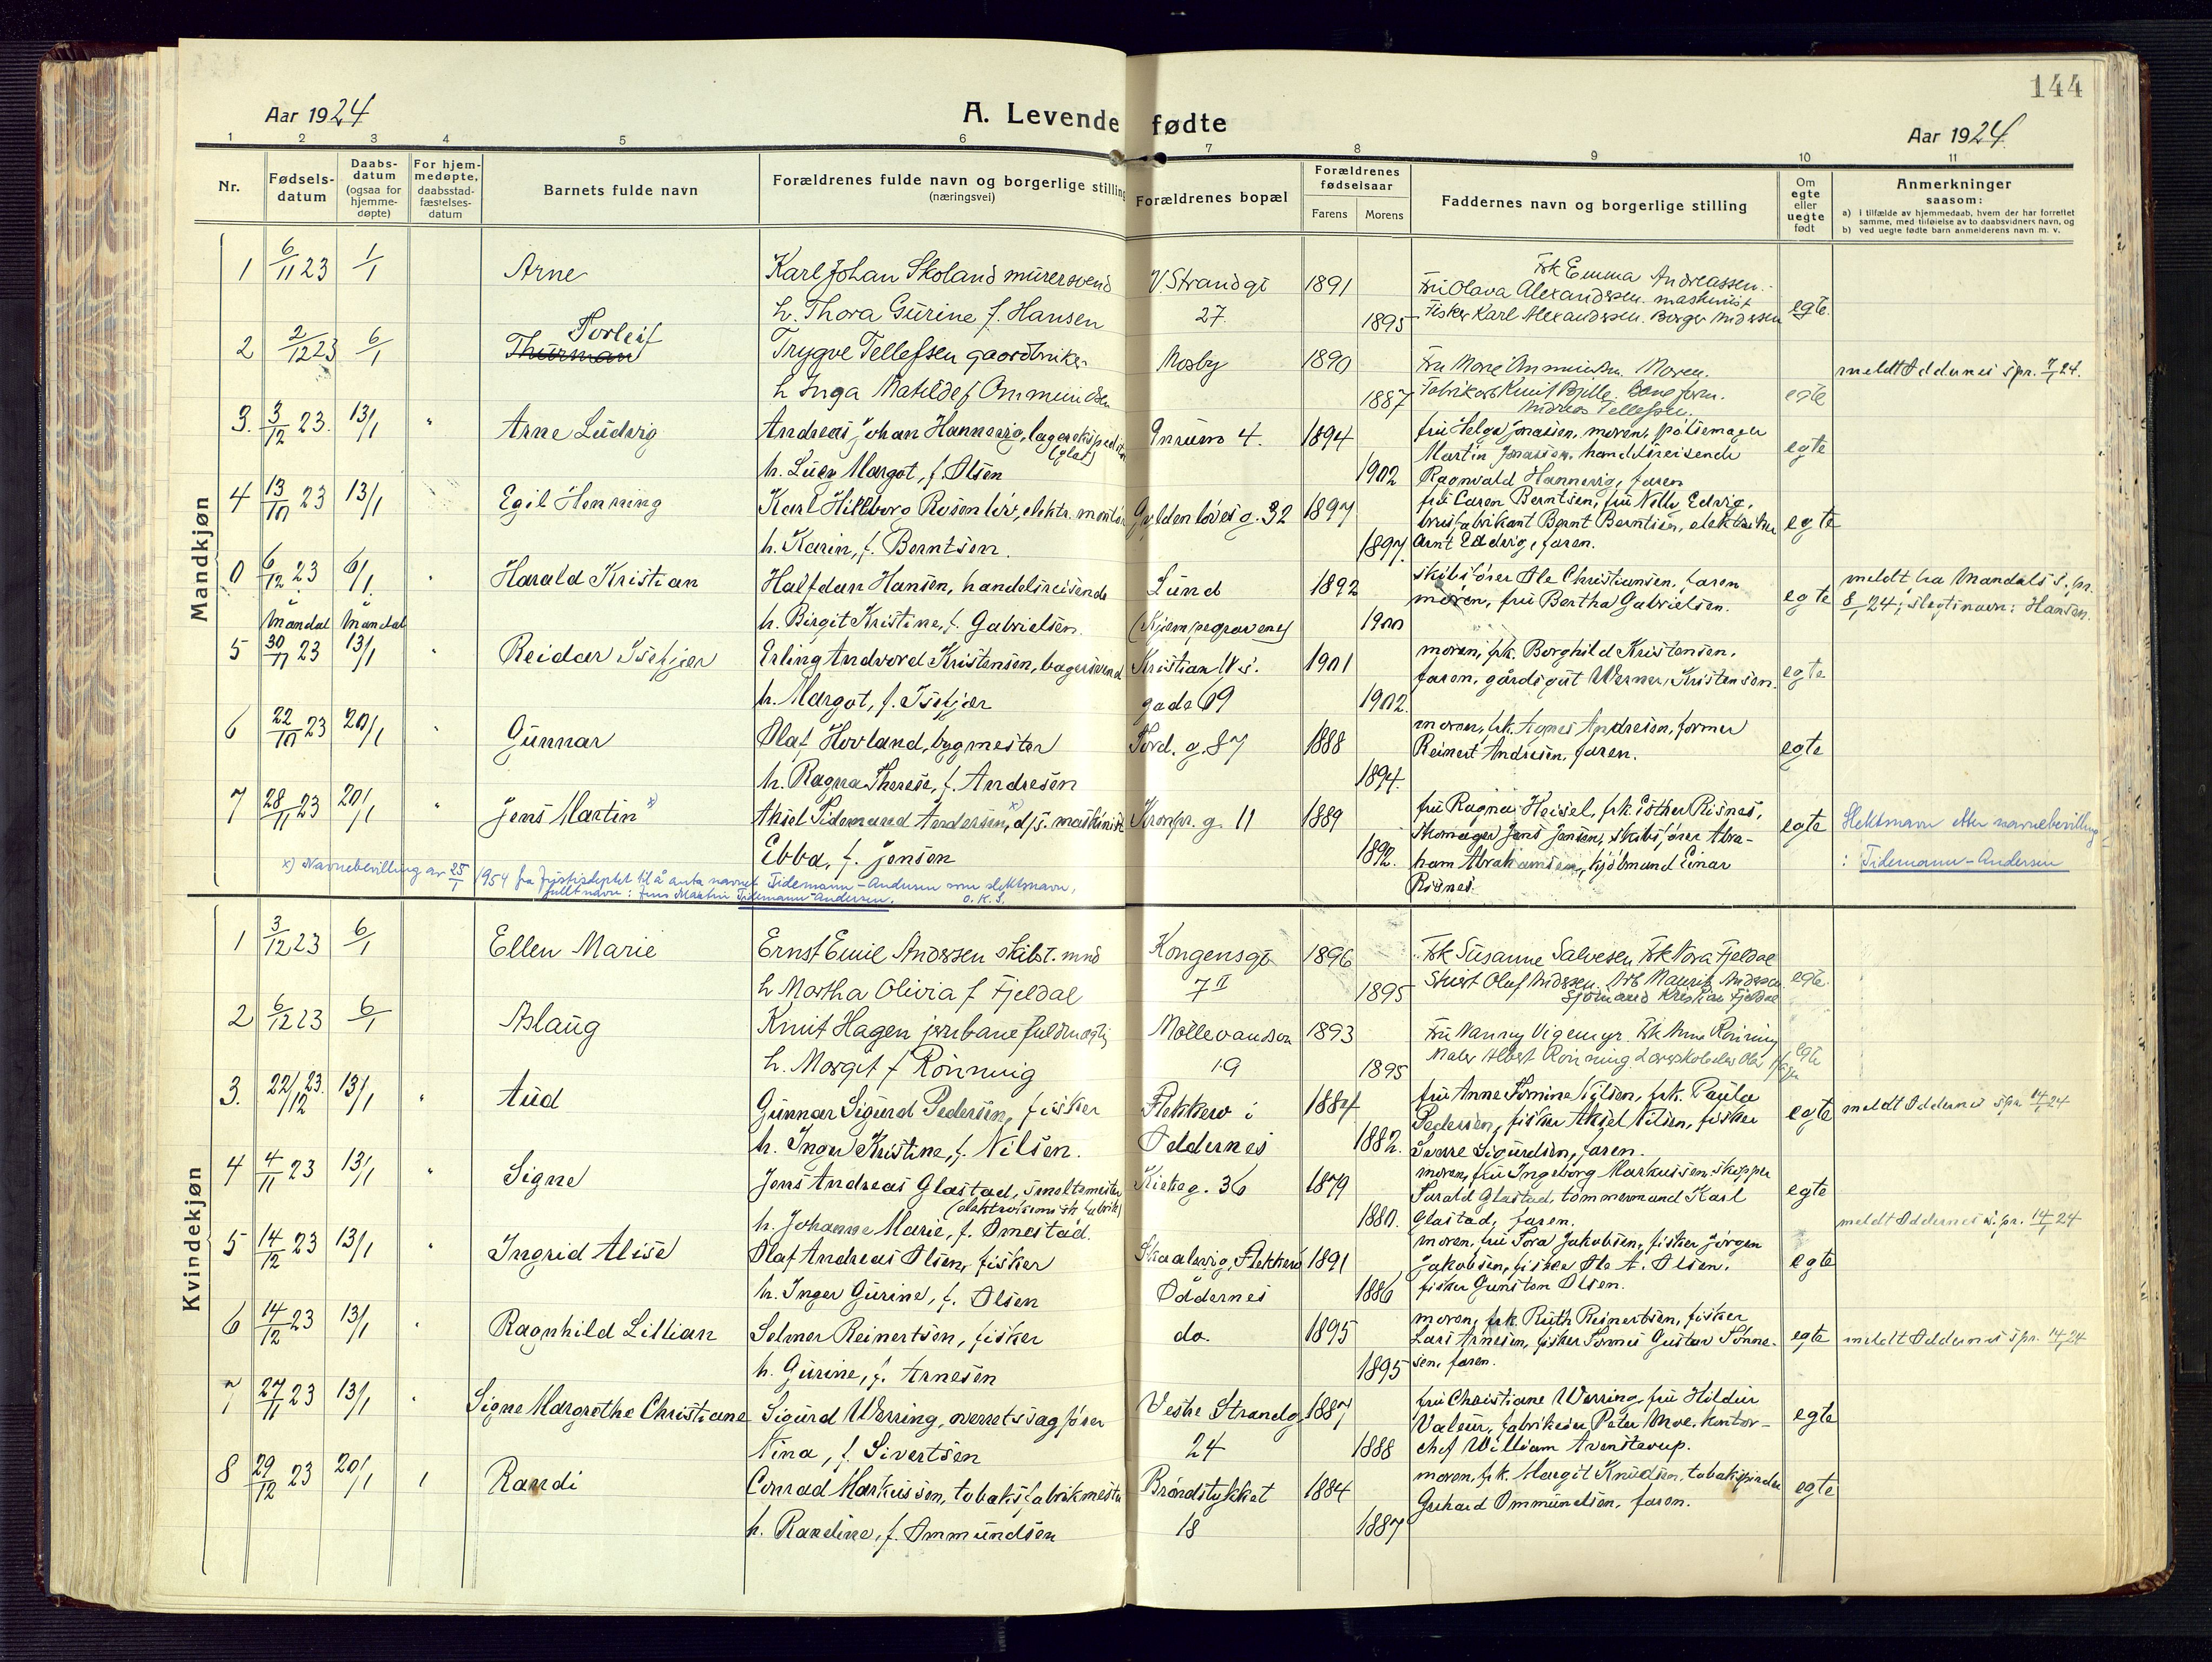 144
Aar 1924
A. Levende fødte
Aar 1924
1 2 3 4 5 6 7 8 9 10 11
Nr.
Fødsels-
datum
Daabs-
datum
(ogsaa for
hjemme-
døpte)
For hjem-
medøpte,
daabsstad-
fæstelses-
datum
Barnets fulde navn
Forældrenes fulde navn og borgerlige stilling
(næringsvei)
Forældrenes bopæl
Forældrenes
fødselsaar
Farens
Morens
Faddernes navn og borgerlige stilling
Om
egte
eller
uegte
født
Anmerkninger
saasom:
a) i tilfælde av hjemmedaab, hvem der har forrettet
samme, med tilføielse av to daabsvidners navn, og
b) ved uegte fødte barn anmelderens navn m. v.
Mandkjøn
1 6/11 23 1/1 Arne Karl Johan Skoland murersvend V. Strandgt 1891 Frk Emma Andreassen.
Fru Olava Alexandersen. maskinist
h. Thora Gurine f. Hansen 27. 1895 Fisker Karl Alexandersen. Borger Andersen egte.
Torleif
2 2/12 23 6/1 Thurman Trygve Tellefsen gaardbruker Mosby 1890 Fru Marie Ommundsen Moren. meldt Oddernes spr. 7/1 24.
h Inga Matilde f Ommundsen 1887 egte
Andreas Tellefsen.
3. 3/12 23. 13/1 " Arne Ludvig Andreas Johan Hannevig, lagerekspeditør 4. 1894 fru Helga Jonassen, moren, pølsemager
Martin Jonassen, handelsreisende egte
h. Lucy Margot, f. Olsen 1902 Ragnvald Hannevig, faren
4 13/10 23 13/1 Egil Henning Karl Hillborg Rosenløv, elektr. montør Gyldenløvesg. 32 1897 fru Caren Berntsen, fru Nelly Edvig,
brusfabrikant Bernt Berntsen, elektriker egte
h. Karin, f. Berntsen. 1897. Arnt Edvig, faren.
0 6/12 23 6/1 " Harald Kristian Halfdan Hansen, handelsreisende Lund 1892 skibsfører Ole Christiansen, faren meldt fra Mandals s.pr.
moren, fru Bertha Gabrielsen. egte 8/1 24; slegtsnavn: Hansen.
Mandal Mandal h. Birgit Kristine, f. Gabrielsen. (Kjempegravene) 1900
5 30/11 23 13/1 " Reidar Isefjær Erling Andvord Kristensen, bagersvend Kristian IV s. 1901 moren, frk. Borghild Kristensen,
faren, gårdsgut Werner Kristensen. egte
h. Margot, f. Isefjær gade 69 1902.
6 22/10 23 20/1 " Gunnar Olaf Hovland, bygmester Tord. g. 87 1888 moren, frk. Agnes Andresen, former
Reinert Andresen, faren. egte
h. Ragna Therese, f. Andresen 1894.
7 28/11 23 20/1 " Jens Martin x) Aksel Tidemand Andersen, x) d/s. maskinist Kronpr. g. 11 1889 fru Ragna Heisel, frk. Esther Risnes, egte Slektsnavn etter navnebevilling
skomager Jens Jensen, skibsfører Abra-
Ebba, f. Jensen 1892. ham Abrahamsen, kjøbmand Einar : Tidemann-Andersen
Risnes.
x) Navnebevilling av 25/1 1954 fra Justisdeptet til å anta navnet Tidemann-Andersen som slektsnavn,
fullt navn: Jens Martin Tidemann-Andersen. O.K.S.
Kvindekjøn
1 3/12 23 6/1 Ellen Marie Ernst Emil Andersen skibst. mnd Kongensgt 1896 Frk Susanne Salvesen Frk Nora Fjeldal
Olaf Andersen. Arb Mauritz Andersen egte.
h Martha Olivia f Fjeldal 7 II 1895 Sjømand Kristian Fjeldal
2 6/12 23 6/1 Aslaug Knut Hagen jernbanefuldmægtig Møllevandsvn 1893 Fru Nanny Vigemyr. Frk Anna Rönning
Maler Albert Rönning. egte
h. Margit f Rönning 19 1895
3. 22/12 23. 13/1 " Aud Gunnar Sigurd Pedersen, fisker Flekkerø i 1884 fru Anne Tomine Nilsen, frk. Paula
Pedersen, fisker Aksel Nilsen, fisker egte meldt Oddernes spr. 14/1 24
h. Inga Kristine, f. Nilsen. Oddernes 1882. Sverre Sigurdsen, faren.
4 4/11 23 13/1 " Signe Jens Andreas Glastad, smeltemester Kirkeg. 36 1879 moren, fru Ingeborg Markussen, skipper
(elektrokemisk fabrik) Harald Glastad, tømmermand Karl egte
h. Johanne Marie, f. Omestad. 1880. Glastad, faren.
meldt Oddernes s.pr. 14/1 24
5 14/12 23 13/1 " Ingrid Alise Olaf Andreas Olsen, fisker Skaalevig, Flekkerø 1891 moren, fru Tora Jakobsen, fisker Jørgen
Jakobsen, fisker Ole A. Olsen, egte
h. Inger Gurine, f. Olsen Oddernes 1886 fisker Gunston Olsen.
6 14/12 23 13/1 " Ragnhild Lillian Selmer Reinertsen, fisker do. 1895 moren, frk. Ruth Reinertsen, fisker
Lars Arnesen, fisker Tomes Gustav Tønne- egte meldt Oddernes spr. 14/1 24
h. Gurine, f. Arnesen 1895 sen, faren.
7 27/11 23 13/1 " Signe Margrethe Christiane Sigurd Werring, overretssagfører Vestre Strandg. 1887 fru Christiane Werring, fru Hildur
Valeur, fabrikeier Peter Moe, kontor- egte
Nina, f. Sivertsen 24 1888 chef William Avenstrup.
8 29/12 23 20/1 " Randi Conrad Markussen, tobaksfabrikmester Brøndstykket 1884 moren, frk. Margit Knudsen, tobakspinder
Gerhard Ommundsen, faren. egte
h. Randine, f. Ommundsen 18 1887